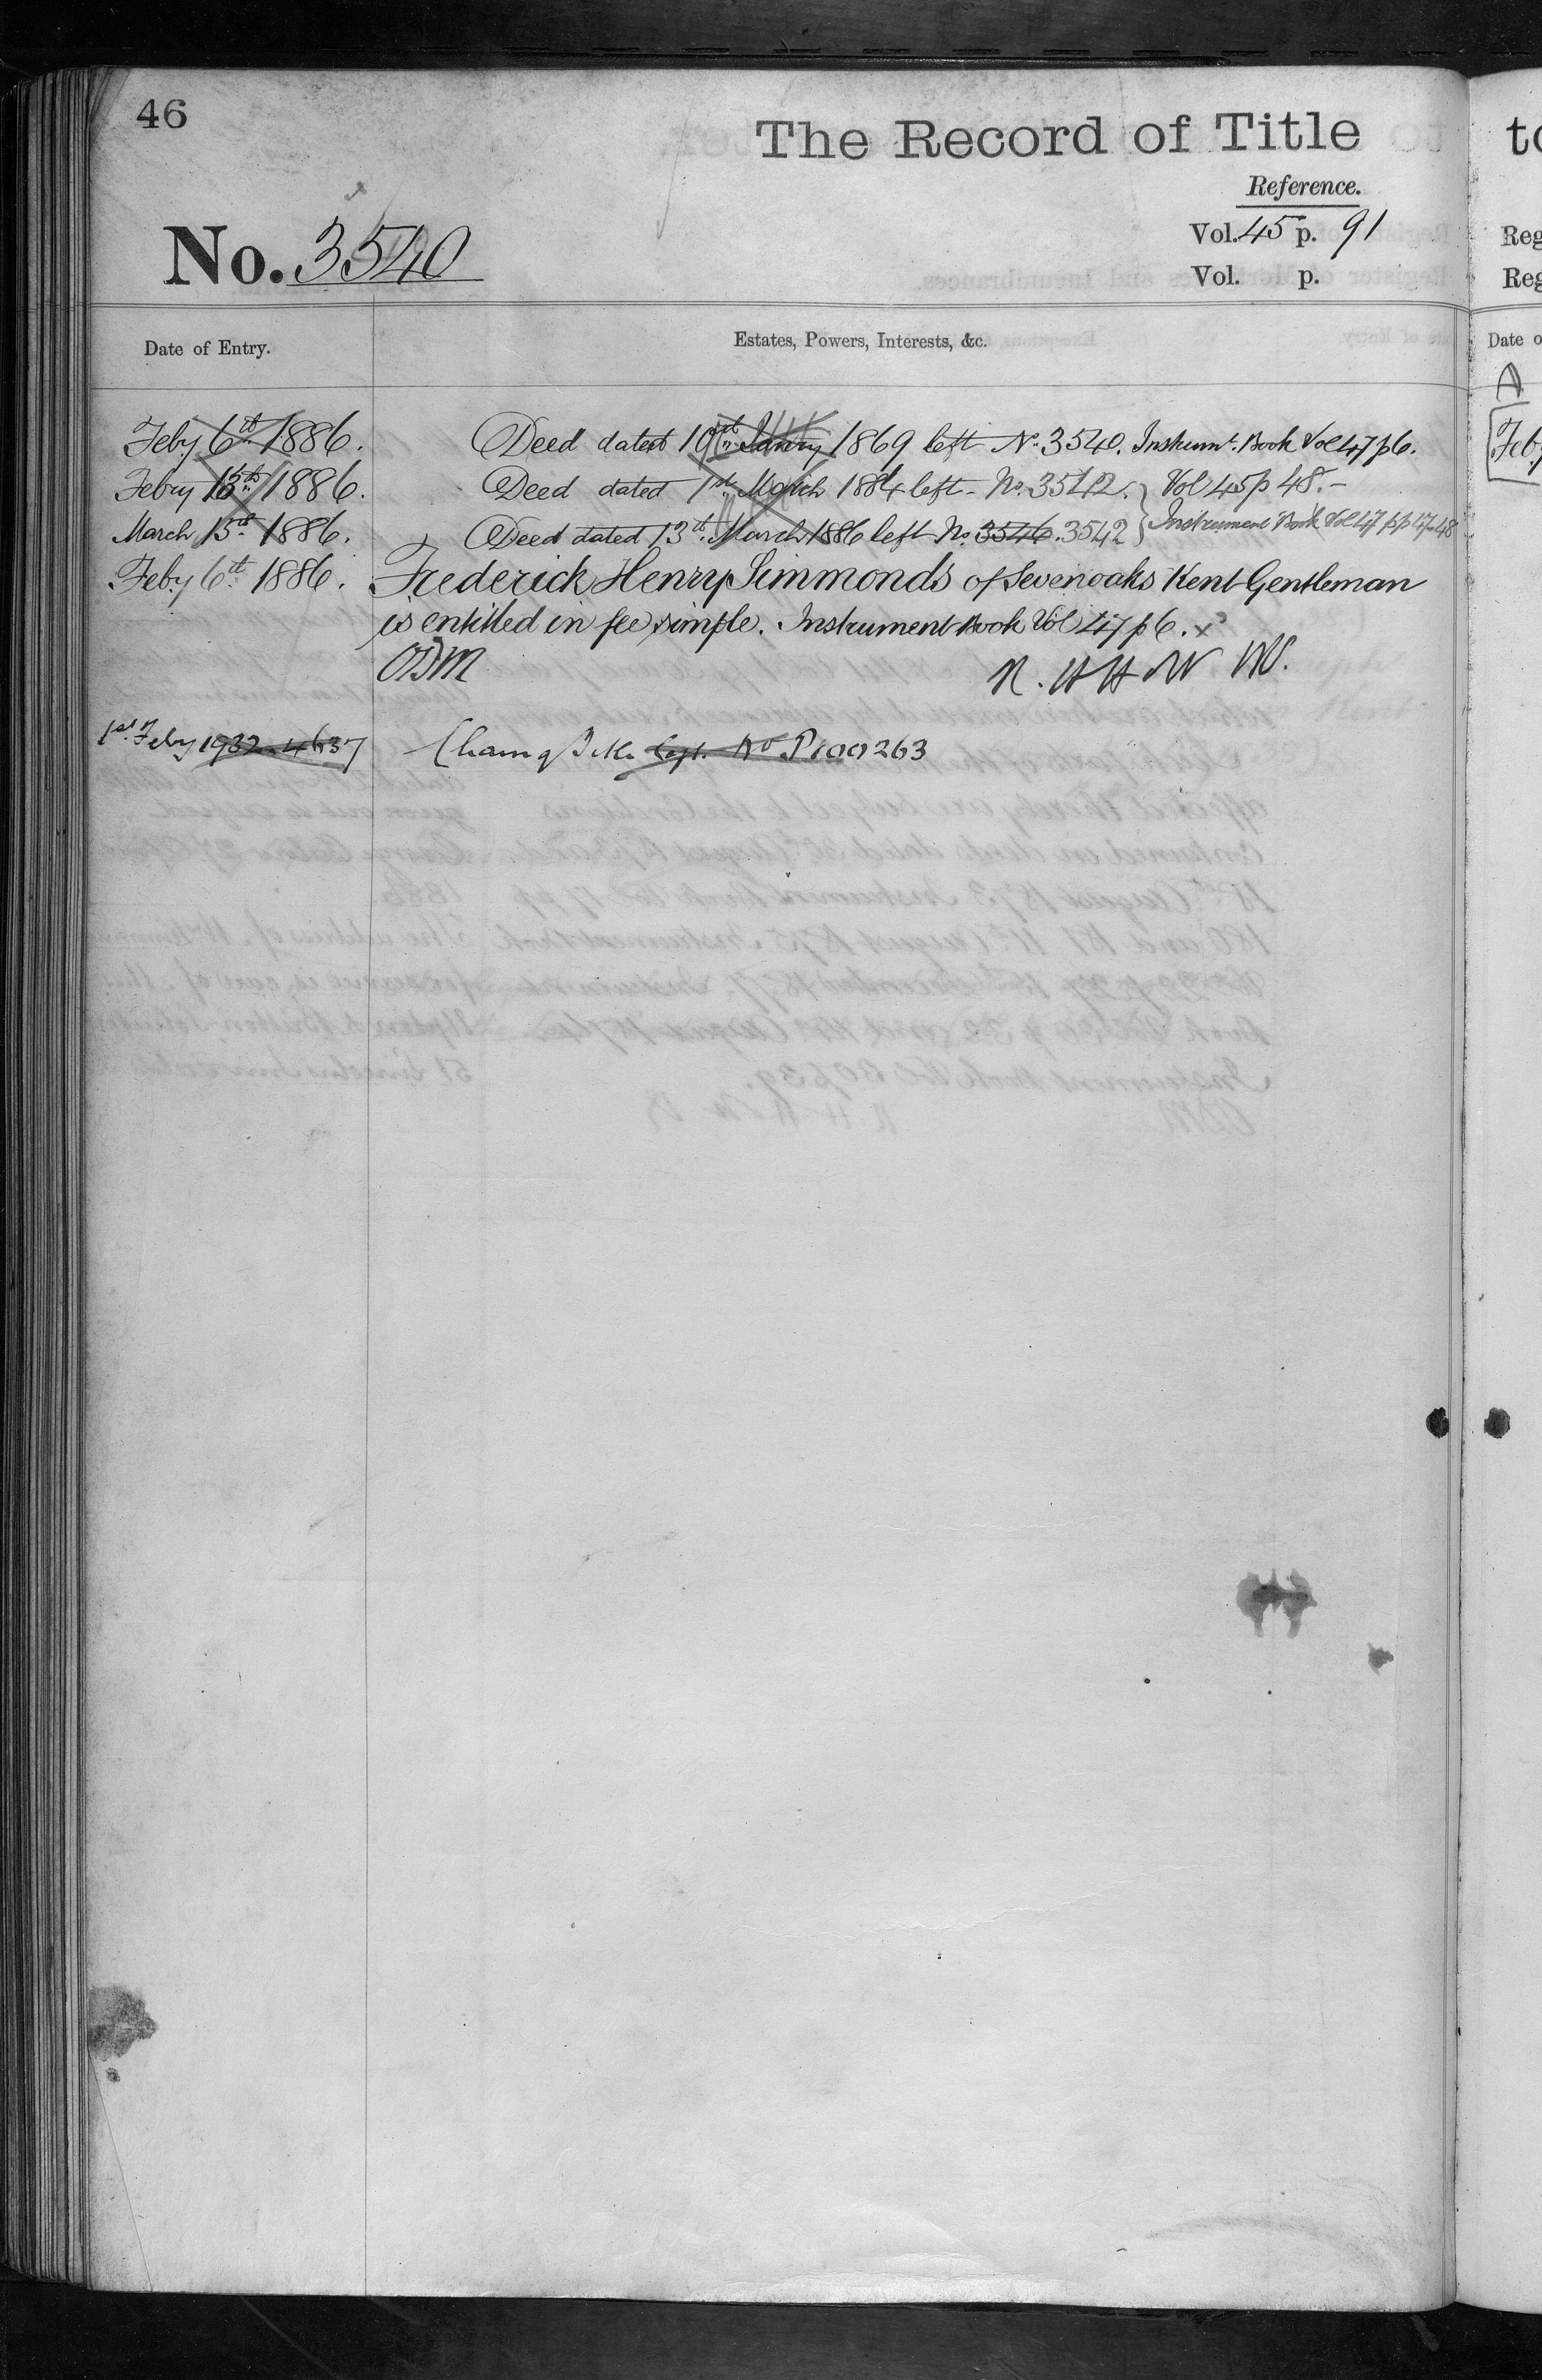 46
The Record of Title
Reference.
Vol. 45 p. 91
No. 3540
Vol. p.
Date of Entry.
Estates, Powers, Interests, &c.
Feby 6th 1886. Deed dated 1869 left No. 3540. Instrumt. Book Vol 47 p 6.
Febry 1886. Deed dated 1st March 1884 left No. 3542. } Vol 45 p 48.-
March 15th 1886. Deed dated 13th March 1886 left No. 3546. 3542 } Instrument Book Vol 47 pp 47-48
Feby 6th 1886. Frederick Henry Simmonds of Sevenoaks Kent Gentleman
is entitled in fee simple. Instrument Book Vol 47 p 6. x
ODM
1st Feby 1932 4637 No P100263
to
Reg
Reg
Date o
A
Feby